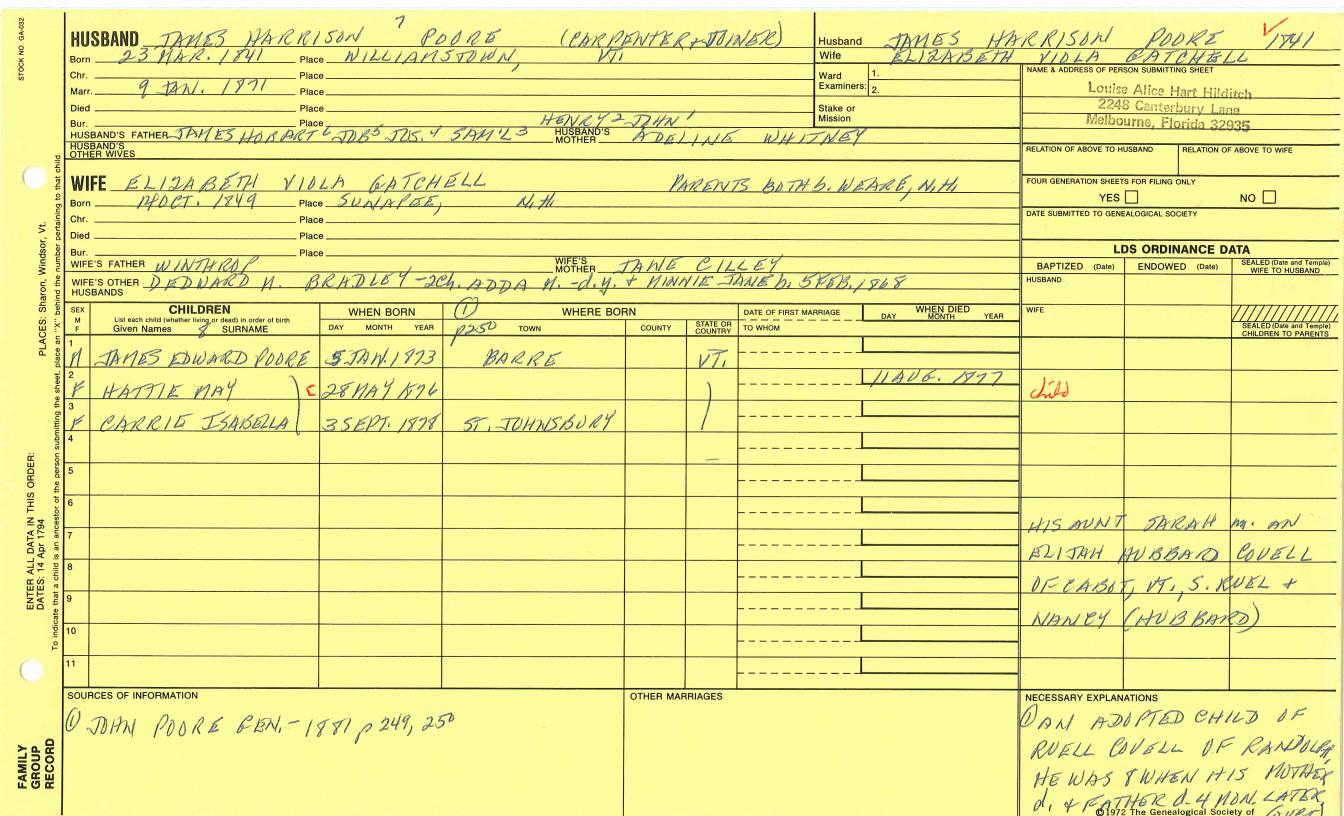 STOCK NO. GA-032
7
HUSBAND JAMES HARRISON POORE (CARPENTER & JOINER)
Born 23 MAR. 1841 Place WILLIAMSTOWN, VT.
Chr. Place
Marr. 9 JAN. 1871 Place
Died Place
Bur. Place HENRY 2 JOHN 1
HUSBAND'S FATHER JAMES HOBART 6 JOB 5 JOS. 4 SAM'L 3 HUSBAND'S MOTHER ADELINE WHITNEY
HUSBAND'S OTHER WIVES
Husband JAMES HARRISON POORE ✓ 1841
Wife ELIZABETH VIOLA GATCHELL
Ward Examiners: 1.
2.
Stake or Mission
NAME & ADDRESS OF PERSON SUBMITTING SHEET
Louise Alice Hart Hilditch
2248 Canterbury Lane
Melbourne, Florida 32935
RELATION OF ABOVE TO HUSBAND RELATION OF ABOVE TO WIFE
FOUR GENERATION SHEETS FOR FILING ONLY
YES NO
DATE SUBMITTED TO GENEALOGICAL SOCIETY
WIFE ELIZABETH VIOLA GATCHELL PARENTS BOTH b. WEARE, N.H.
Born OCT. 1849 Place SUNAPEE, N.H.
Chr. Place
Died Place
Bur. Place
WIFE'S FATHER WINTHROP WIFE'S MOTHER JANE CILLEY
WIFE'S OTHER HUSBANDS EDWARD N. BRADLEY - 2ch. ADDA M. - d.y. & MINNIE JANE b. 5 FEB. 1868
LDS ORDINANCE DATA
BAPTIZED (Date) ENDOWED (Date) SEALED (Date and Temple) WIFE TO HUSBAND
HUSBAND
WIFE
SEALED (Date and Temple) CHILDREN TO PARENTS
SEX M F
CHILDREN
List each child (whether living or dead) in order of birth
Given Names 8 SURNAME
WHEN BORN
DAY MONTH YEAR
① p250
WHERE BORN
TOWN COUNTY STATE OR COUNTRY
DATE OF FIRST MARRIAGE
TO WHOM
WHEN DIED
DAY MONTH YEAR
1 M JAMES EDWARD POORE 5 JAN. 1873 BARRE VT.
2 F HATTIE MAY C 28 MAY 1876 11 AUG. 1877 child
3 F CARRIE ISABELLA 3 SEPT. 1878 ST. JOHNSBURY
4
5
6
7
8
9
10
11
HIS AUNT SARAH m. AN
ELIJAH HUBBARD COVELL
OF CABOT, VT., S. RUEL &
NANCY (HUBBARD)
SOURCES OF INFORMATION
① JOHN POORE GEN. - 1881 p 249, 250
OTHER MARRIAGES
NECESSARY EXPLANATIONS
① AN ADOPTED CHILD OF
RUELL COVELL OF RANDOLPH,
HE WAS 8 WHEN HIS MOTHER
d. & FATHER d. 4 MON. LATER,
©1972 The Genealogical Society of
PLACES: Sharon, Windsor, Vt.
ENTER ALL DATA IN THIS ORDER:
DATES: 14 Apr 1794
To indicate that a child is an ancestor of the person submitting the sheet, place an "X" behind the number pertaining to that child
FAMILY GROUP RECORD